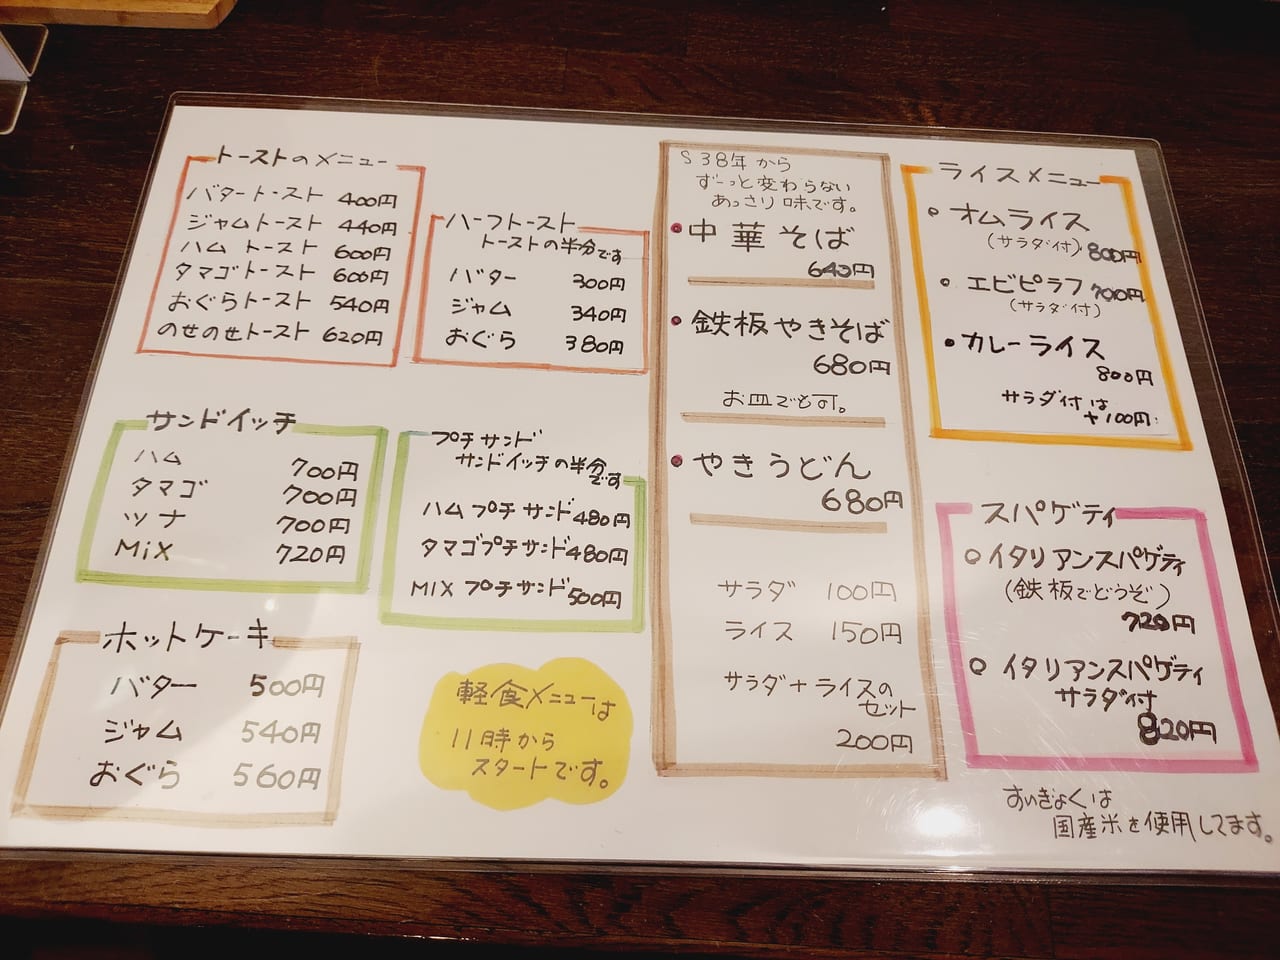 トーストのメニュー
バタートースト 400円
ジャムトースト 440円
ハムトースト 600円
タマゴトースト 600円
おぐらトースト 540円
のせのせトースト 620円
ハーフトースト
トーストの半分です
バター 300円
ジャム 340円
おぐら 380円
サンドイッチ
ハム 700円
タマゴ 700円
ツナ 700円
MiX 720円
プチサンド
サンドイッチの半分
です
ハムプチサンド 480円
タマゴプチサンド 480円
MIXプチサンド 500円
ホットケーキ
バター 500円
ジャム 540円
おぐら 560円
軽食メニューは
11時から
スタートです。
S38年から
ずーっと変わらない
あっさり味です。
中華そば
640円
鉄板やきそば
680円
お皿でも可。
やきうどん
680円
サラダ 100円
ライス 150円
サラダ+ライスの
セット
200円
ライスメニュー
オムライス
(サラダ付) 800円
エビピラフ 700円
(サラダ付)
カレーライス
800円
サラダ付は
+100円
スパゲティ
イタリアンスパゲティ
(鉄板でどうぞ)
720円
イタリアンスパゲティ
サラダ付
820円
すいぎょくは
国産米を使用してます。